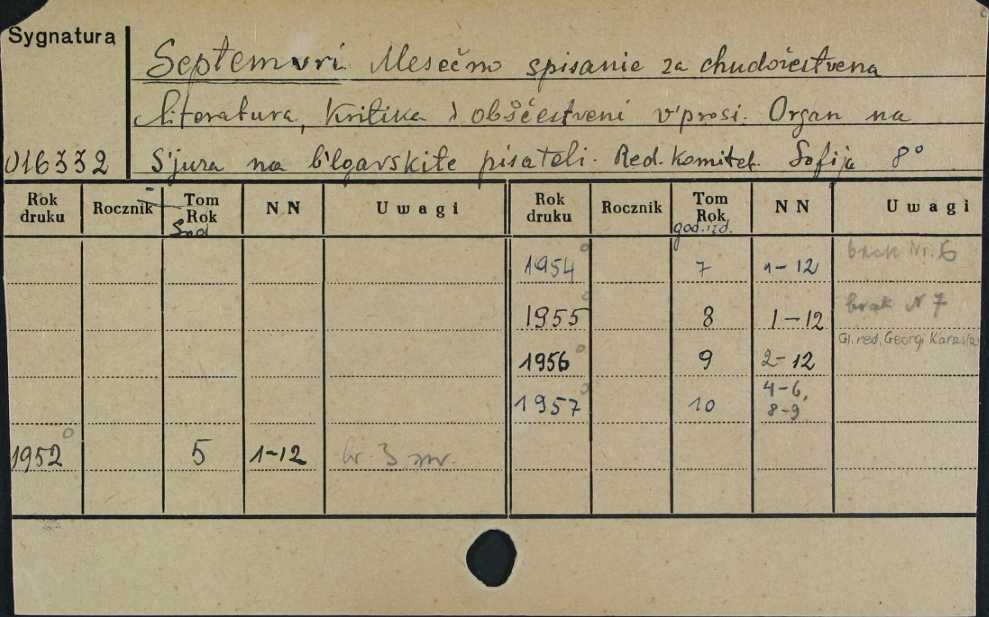 Sygnatura
Septemvri Mesečno spisanie za chudožestvena
literatura, kritika i obščestveni v'prosi. Organ na
016332 S'juza na b'lgarskite pisateli. Red. komitet. Sofija 8°
Rok druku Rocznik Tom Rok NN Uwagi Rok druku Rocznik Tom Rok god. izd. NN Uwagi
1954° 7 1-12 brak Nr. 6
1955° 8 1-12 brak N 7
1956° 9 2-12 Gl. red. Georgi
1957° 10 4-6, 8-9
1952° 5 1-12